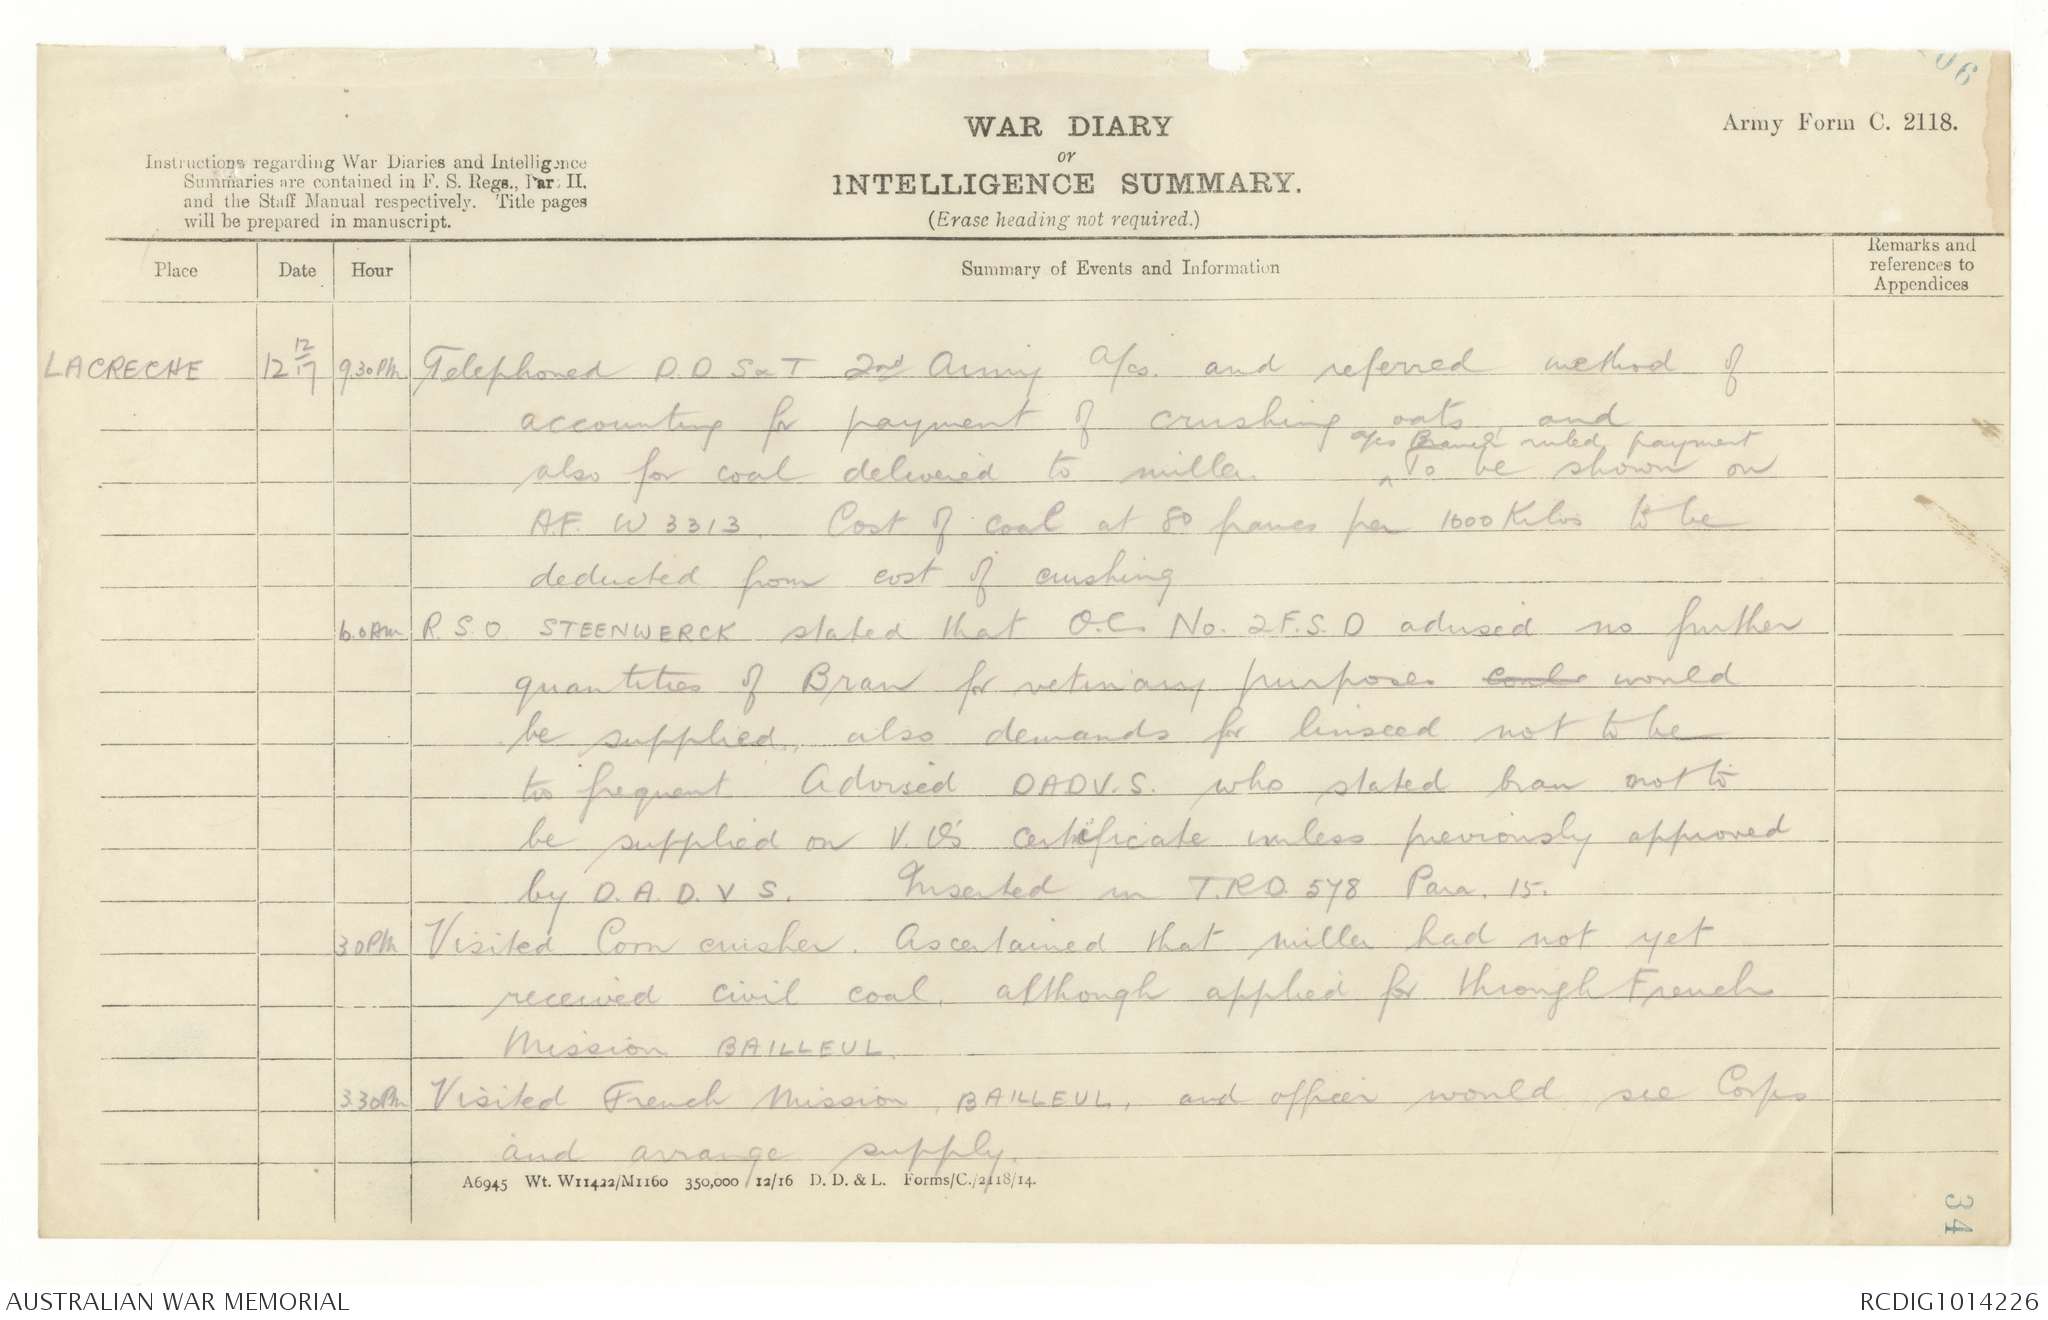 06
WAR DIARY
or
INTELLIGENCE SUMMARY.
(Erase heading not required.)
Army Form C. 2118.
Instructions regarding War Diaries and Intelligence
Summaries are contained in F. S. Regs., Part II.
and the Staff Manual respectively. Title pages
will be prepared in manuscript.
Place Date Hour Summary of Events and Information Remarks and references to Appendices
LACRECHE 12 12/17 9.30PM Telephoned D.D.S & T 2nd Army a/cs. and referred method of
accounting for payment of crushing oats, and
a/cs Branch ruled payment
also for coal delivered to miller. ^ To be shown on
A.F. W 3313. Cost of coal at 80 francs per 1000 Kilos to be
deducted from cost of crushing
6.0AM R.S.O STEENWERCK stated that O.C. No. 2 F.S.D advised no further
quantities of Bran for vetinary purposes would
be supplied, also demands for linseed not to be
too frequent Advised DADV.S. who stated bran not to
be supplied on V.O's certificate unless previously approved
by D.A.D.V S. Inserted in T.R.O. 578 Para. 15.
3 0PM Visited Corn crusher. Ascertained that miller had not yet
received civil coal, although applied for through French
Mission BAILLEUL.
3.30PM Visited French Mission, BAILLEUL, and officer would see Corps
and arrange supply.
A6945 Wt. W11422/M1160 350,000 12/16 D. D. & L. Forms/C./2118/14.
34
AUSTRALIAN WAR MEMORIAL RCDIG1014226